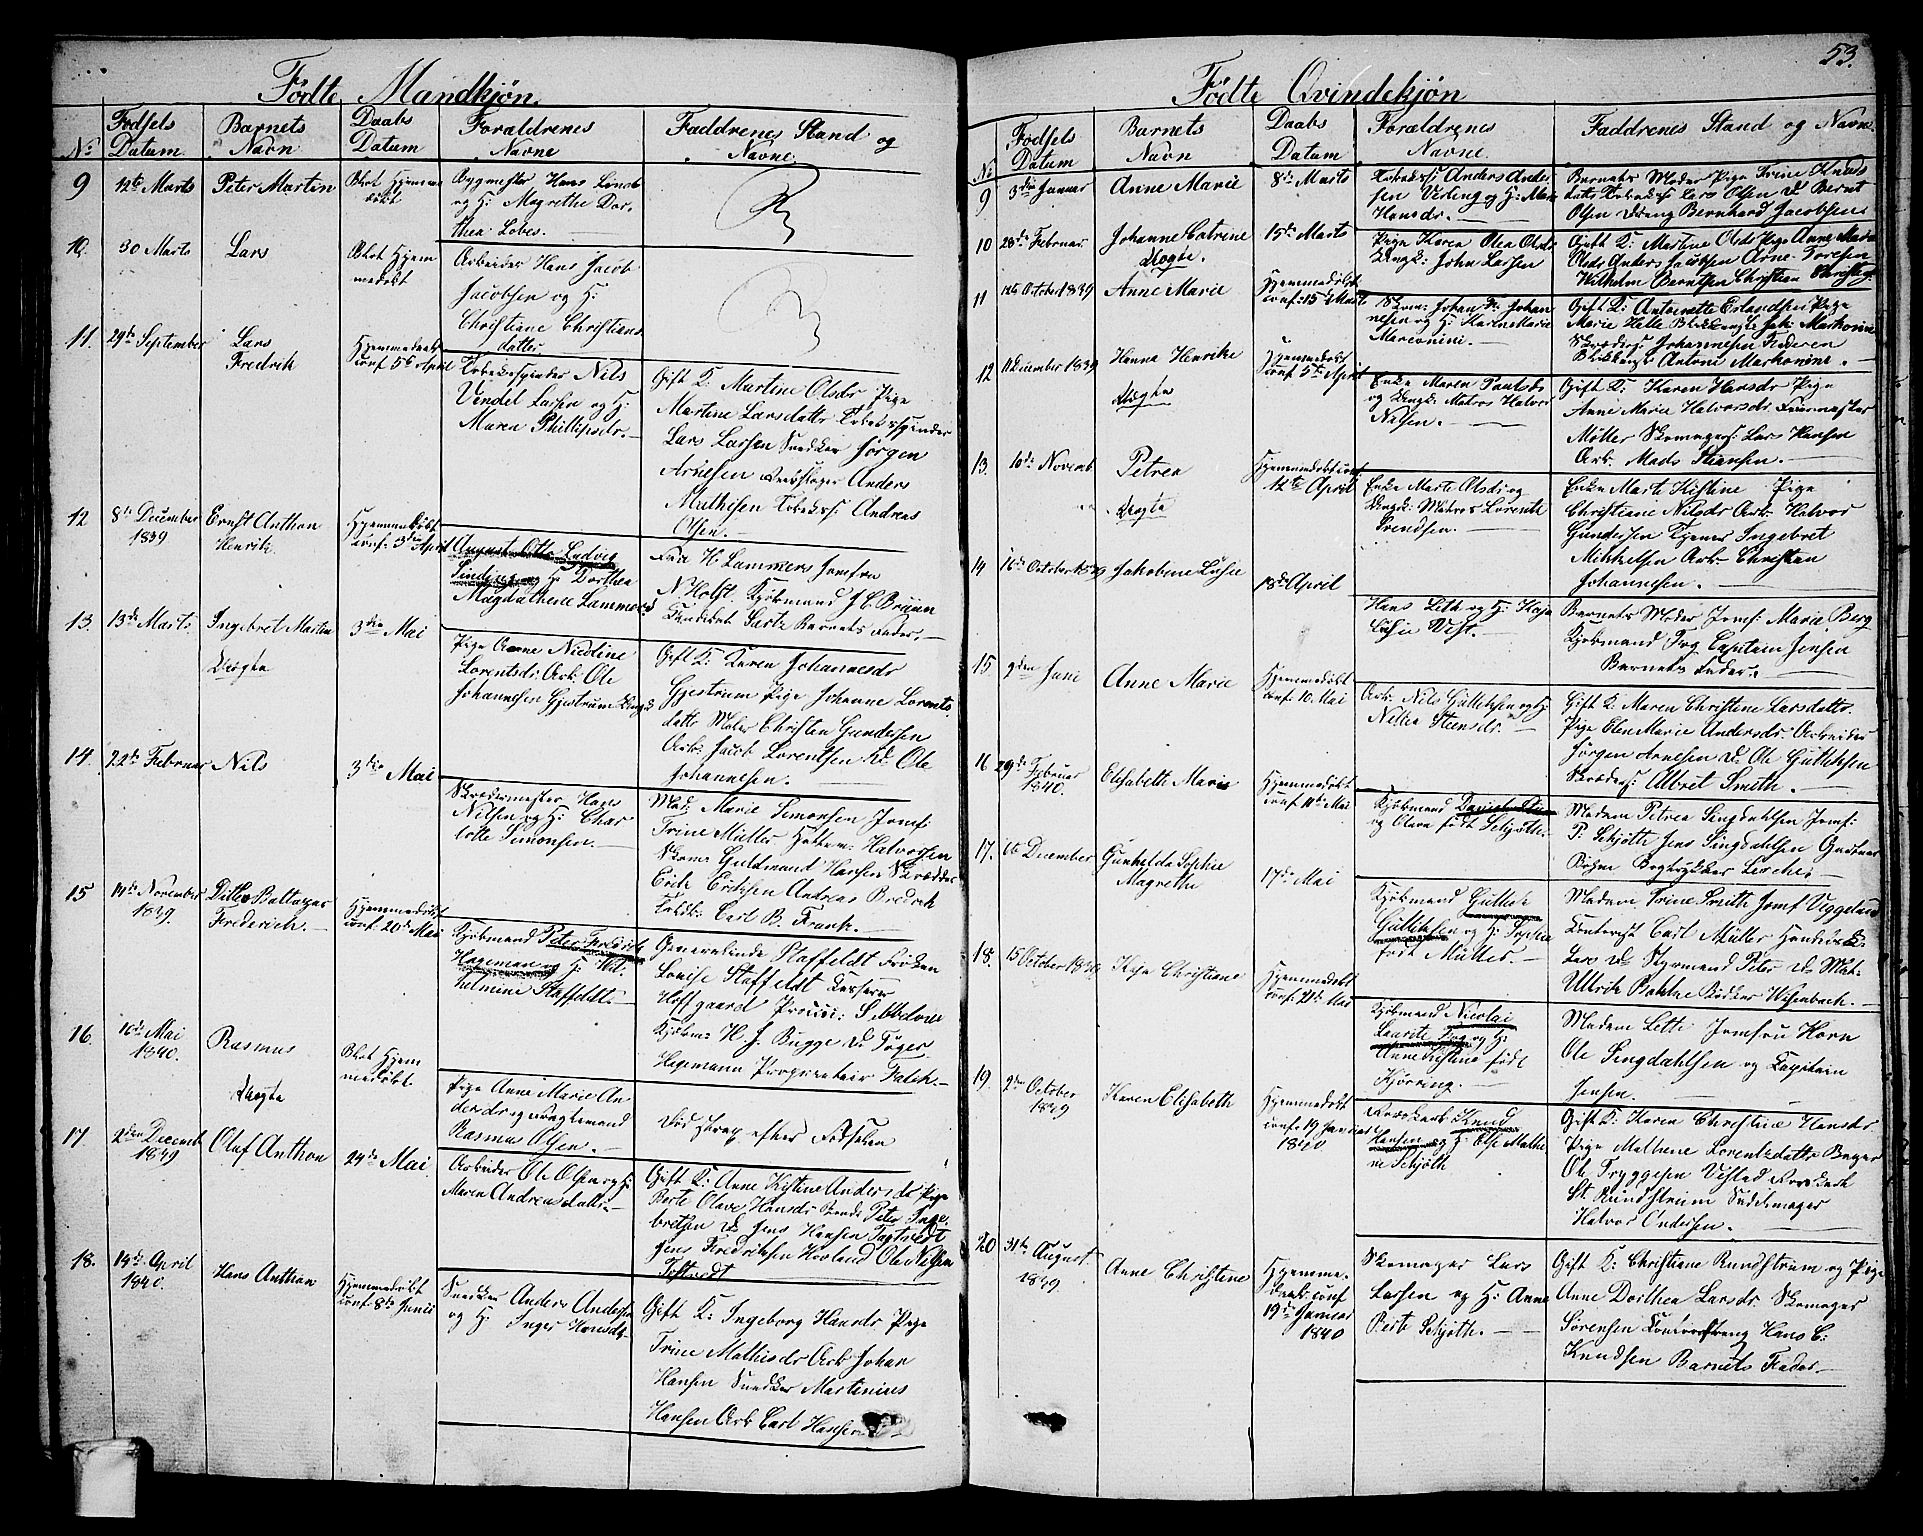 53.
Fødte Mandkjøn.
No
Fødsels Datum
Barnets Navn
Daabs Datum
Forældrenes Navne
Faddrenes Stand og Navne
9
12te Marts
Peter Martin
Blot Hjemmedøbt
Bygmester Hans Linde
og H: Magrethe Dor-
thea Lobes.
10.
30 Marts
Lars
Blot Hjem
medøbt
Arbeider Hans Jacob
Jacobsen og H:
Christiane Christians
datter
11.
29de September
Lars
Fredrik
Hjemmedøbt
conf 5te April
Tobakspinder Nils
Vindel Larsen og H:
Maren Phillipsdr.
Gift K: Martine Olsdr Pige
Martine Larsdatter Tobakspinder
Lars Larsen Snedker Jørgen
Arnesen Anders
Mathisen Tobakss: Andreas
Olsen.
12
8de December
1839
Ernst Anthon
Henrik
Hjemmedøbt
conf: 3die April
August Otto Ludvig
Sinding og H: Dorthea
Magdalhene Lammers
Frue H. Lammers Jomfru
N. Holst. Kjøbmand J. C. Bruun
Barnets Fader.
13.
13de Marts
Ingebret Martin
Uægte
3die Mai
Pige Anne Nicoline
Lorentsdr Arb: Ole
Johannesen Gjestrum
Gift K: Karen Johannesdr
Gjestrum Pige Johanne Lorents
datter Maler Christen Gundersen
Arb: Jacob Lorentsen Ole
Johannesen.
14.
22de Februar
Nils
3die Mai
Skredermester Hans
Nilsen og H: Char
lotte Simonsen.
Mad. Marie Simonsen Jomf:
Trine Müller Halvorsen
Skom: Guldmand Hansen Skrædder
Erik Eriksen Andreas Bredesk
Carl B. Frank.
15
14de November
1839.
Ditlev Baltazar
Frederich.
Hjemmedøbt
conf. 20de Mai
Kjøbmand Peter Fredrik
Hageman og H: Wil-
helmine Staffeldt
Generalinde Staffeldt Frøken
Louise Staffeldt Kasserer
Hoffgaard Sibbelvær
Kjøbm: H. J. Bugge Do Føger
Hagemann Proprietair Falck.
16.
16de Mai
1840.
Rasmus
Uægte
Blot Hjem
medøbt
Pige Anne Marie An
dersdr og Vægtemand
Rasmus Olsen.
Død strax efter Fødselen
17.
2den Decemb
1839
Olaf Anthon
24de Mai
Arbeider Ole Olsen og H:
Maren Andreasdatter
Gift K: Anne Kistine Andersdr Pige
Berte Olave Hansdr Peter Inge-
bretsen Do Jens Hansen Tostvedt
Jens Fredriksen Hovland Ole Nilsen
Tostvedt
18.
14de April
1840.
Hans Anthon
Hjemmedøbt
conf 8de Junii
Snedker Anders Andersen
og H: Inger Hansdr.
Gift K: Ingeborg Hansdr Pige
Trine Mathisdr Arb Johan
Hansen Snedker Martinius
Hansen Arb Carl Hansen
Fødte Qvindekjøn
No
Fødsels Datum
Barnets Navn
Daabs Datum
Forældrenes Navne.
Faddrenes Stand og Navne
9
3die Januar
Anne Marie
8de Marts
Tobakss: Anders Ander
sen Verling og H: Mari
Hansdr.
Barnets Moder Pige Trine Knuds
datter Tobakss: Lars Olsen Do Bernt
Olsen Dreng Bernhard Jacobsen
10
28de Februar
Johanne Catrine
Uægte.
15de Marts
Pige Karen Olea Olsdr
Ungk: John Larsen
Gift K: Martine Olsdr Pige Anne Maria
Olsdr Anders Jacobsen Arne Toresen
Wilhelm Berntsen Christian
11
October 1839
Anne Marie
Hjemmedøbt
conf: 15de Marts
Skom: Johan Fr: Johan
nesen og H: Karen Marie
Marconini.
Gift K: Antoinette Erlandsen Pige
Marie Helle Blikkensl: Joh: Markonini
Skræders: Johannesen Faderen
Blikkensl: Antoni Markonini.
12
December 1839
Hanna Henrike
Uægte
Hjemmedøbt
conf 5te April
Enke Maren Paulsdr
og Ungk: Matros Halvor
Nilsen.
Gift K: Karen Hansdr Pige
Anne Maria Halvorsdr Feiermester
Møller Skomagers: Lars Hansen
Arb. Mads Stiansen.
13.
10de Novemb
Petrea
Uægte
Hjemmedøbt conf.
12te April
Enke Marte Olsdr og
Ungk: Matros Lorents
Svendsen.
Enke Marte Kistine Pige
Christiane Nilsdr Arb: Halvor
Gundersen Tjener Ingebret
Mikkelsen Arb: Christian
Johannesen.
14
16de October 1839
Jakobine Luhie
18de April
Hans Leth og H: Kaja
Luhie Vest.
Barnets Moder Jomf: Marie Berg
Kjøbmand Fog Captein Jensen
Barnets Fader.
15
9den Juni
Anne Marie
Hjemmedøbt
conf. 10. Mai
Arb: Nils Gulliksen og H:
Nillia Steensdr.
Gift K: Maren Christine Larsdatter
Pige Elen Marie Andersdr Arbeider
Jørgen Arnesen Do Ole Gulliksen
Skræders: Albret Smith.
16
29de Februar
1840.
Elisabeth Marie
Hjemmedøbt
conf 11te Mai
Kjøbmand
og Olava født Schjøtte
Madam Petrea Singdahlsen Jomf:
P: Schjøth Jens Singdahlsen Gartner
Bøhm Bogtrykker Lerche
17.
December
Gunhilda Sophie
Magrethe
17de Mai
Kjøbmand Gullich
Gullichsen og H: Sophie
født Müller.
Madam Trine Smith Jomf Viggeland
Contorist Carl Müller
Lars Do Styrmand Peter Do Mat:
Ullrik Bøkker Wisenbach.
18.
15 October 1839
Kaja Christiane
Hjemmedøbt
conf 21de Mai
Kjøbmand Nicolai
Laurits Fog og H:
Anne Kistine født
Hjørring.
Madam Lette Jomfru Horn
Ole Singdahlsen og Capitain
Jensen.
19.
2den October
1839
Karen Elisabeth
Hjemmedøbt
conf. 19 Januar
1840
Knud
Hansen og H: Else Mathe
ne Schjøth
Gift K: Karen Christine Hansdr
Pige Mathene Lorentsdatter Bager
Ole Tryggesen Vestad
St. Rundstrøm Sadelmager
Halvor Andersen.
20
31te August
1839.
Anne Christine
Hjemme-
døbt: conf
19de Januar
1840
Skomager Lars
Larsen og H: Anne
Berte Schjøth.
Gift K: Christiane Rundstrøm og Pige
Anne Dorthea Larsdr. Skomager
Sørensen Hans C:
Knudsen Barnets Fader